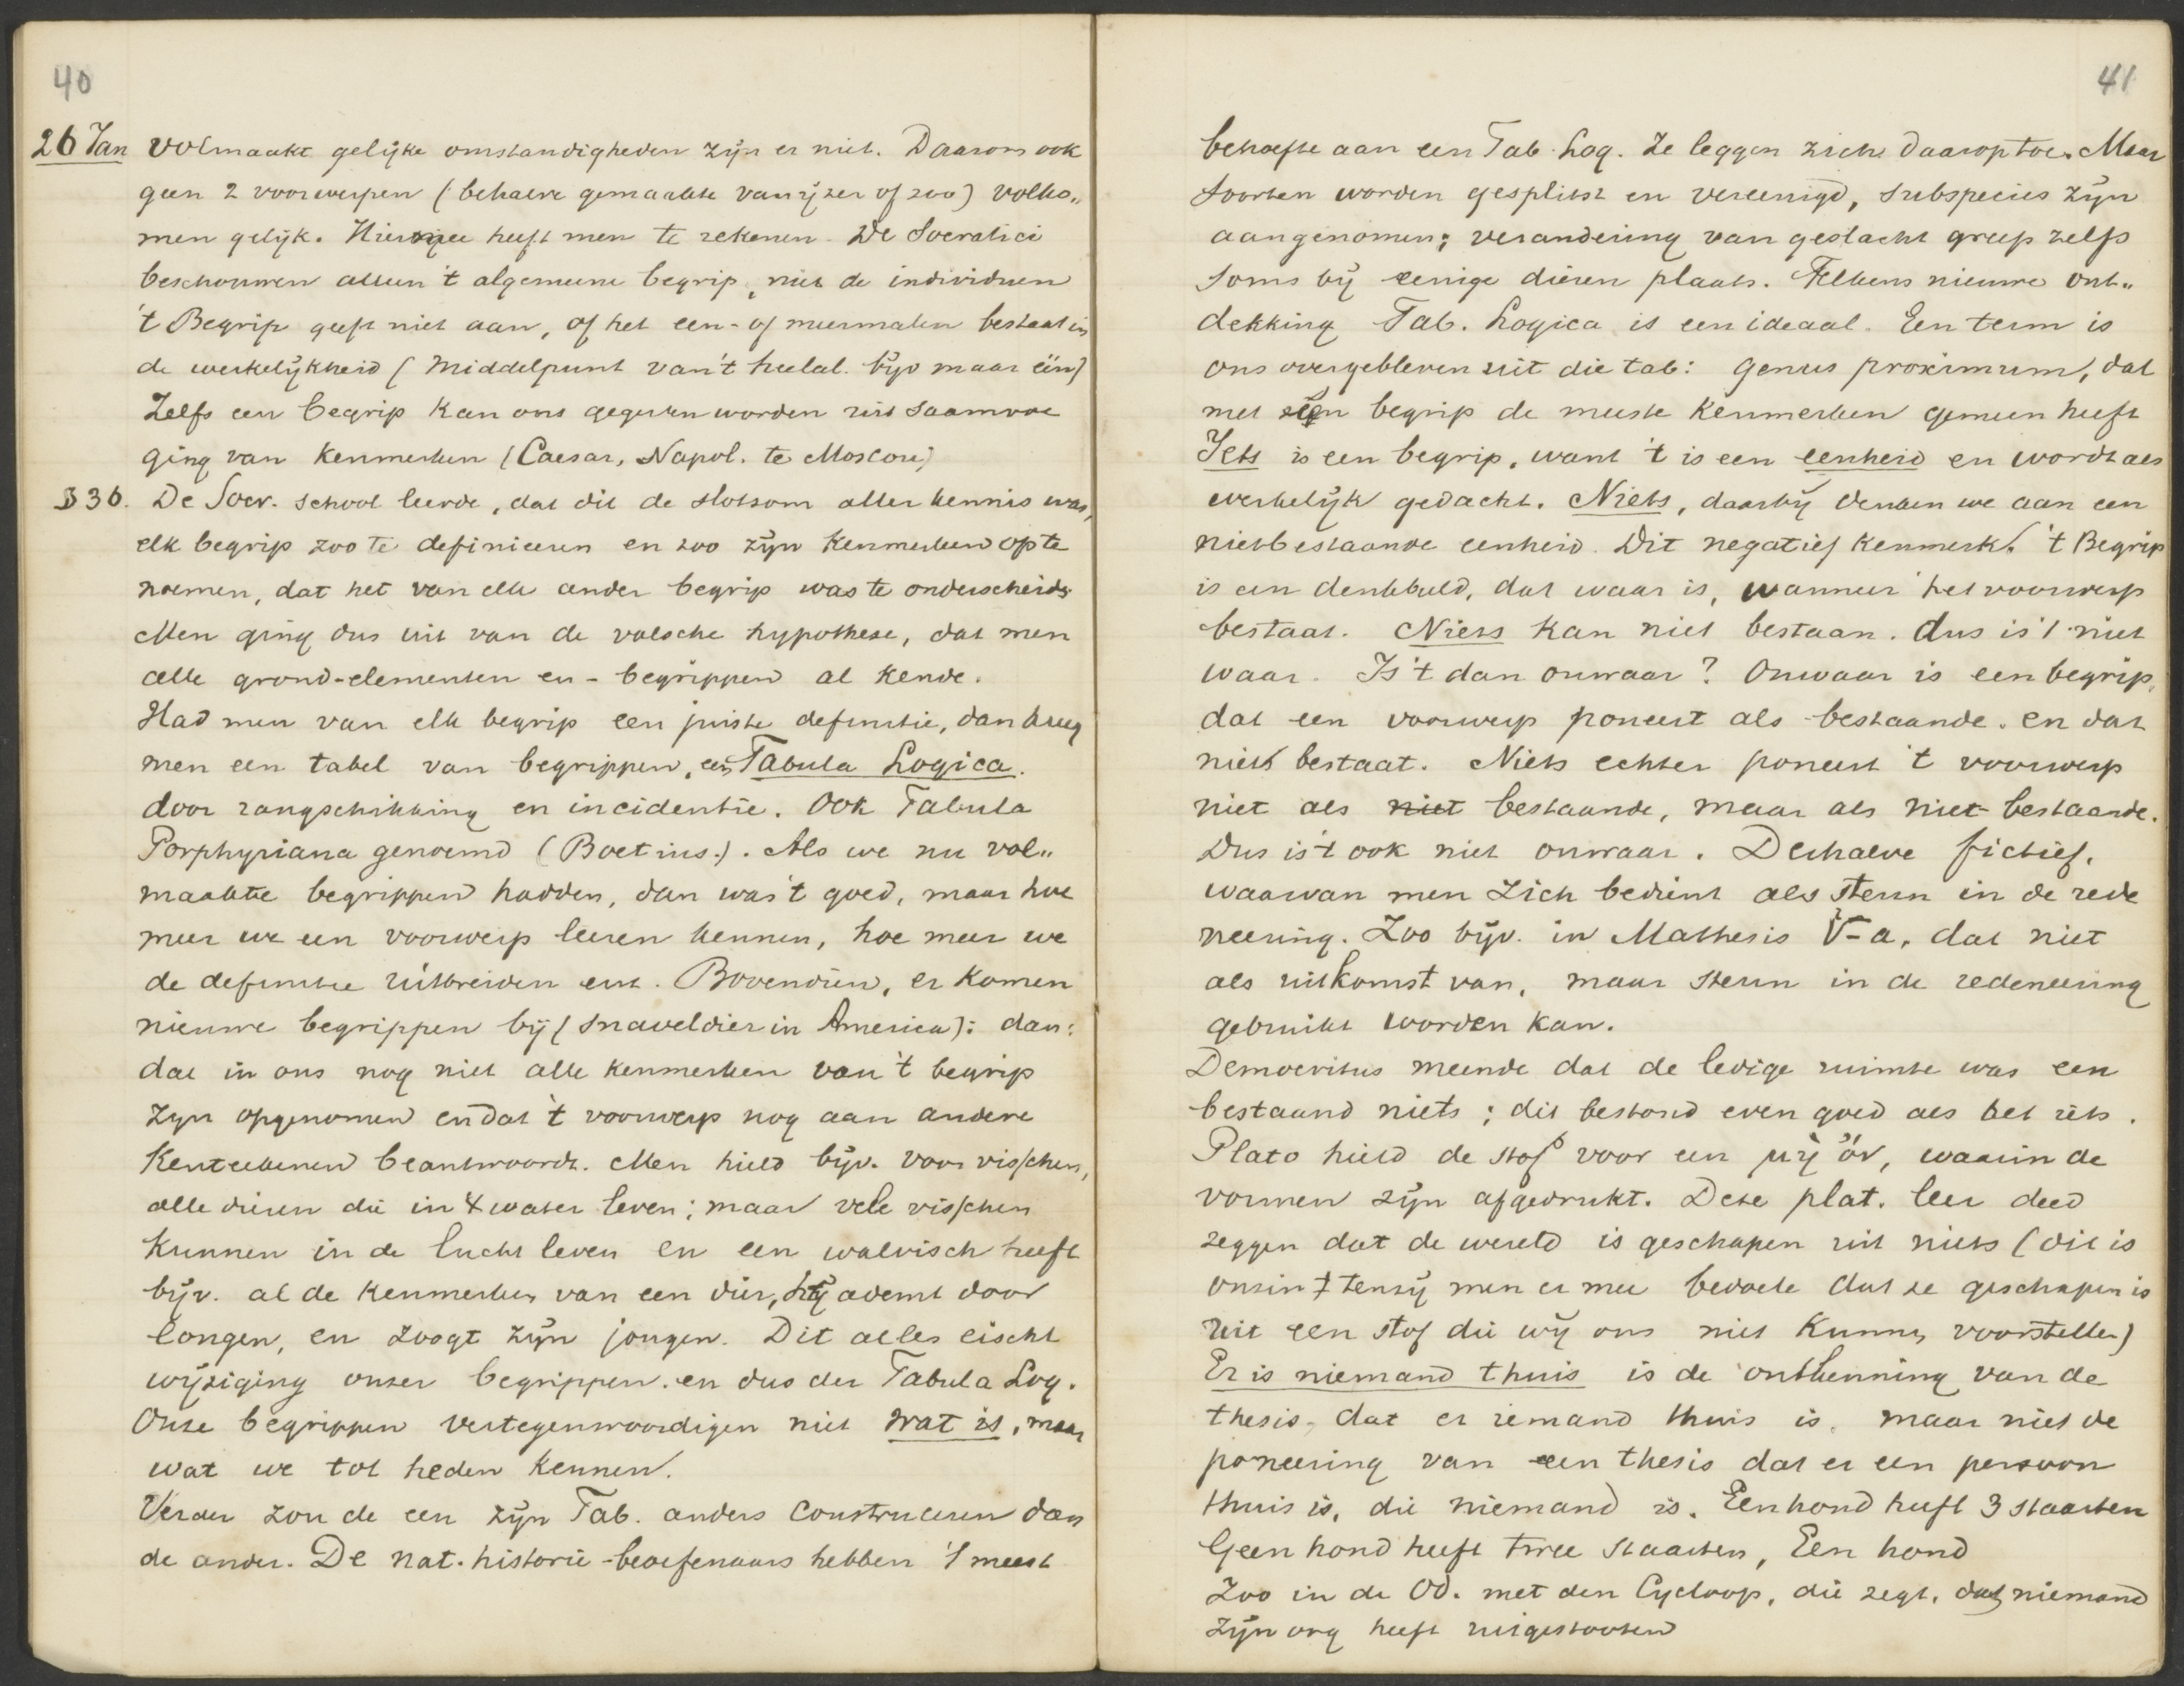 40
26 Jan Volmaakt gelijke omstandigheden zijn er niet. Daarom ook
geen 2 voorwerpen (behalve gemaakte van ijzer of zoo) volko„
men gelijk. Hiermee heeft men te rekenen. De Socratici
beschouwen alleen 't algemeene begrip, niet de individuen
't Begrip geeft niet aan, of het een- of meermalen bestaat in
de werkelijkheid (Middelpunt van 't heelal bijv maar één)
Zelfs een begrip kan ons gegeven worden uit saamvoe
ging van kenmerken (Caesar, Napol. te Moscou)
§ 36. De Socr. school leerde, dat dit de slotsom aller kennis was,
elk begrip zoo te definieeren en zoo zijn kenmerken op te
noemen, dat het van elk ander begrip was te onderscheid.
Men ging dus uit van de valsche hypothese, dat men
alle grond-elementen en - begrippen al kende.
Had men van elk begrip een juiste definitie, dan kreeg
men een tabel van begrippen, een Tabula Logica.
door rangschikking en incidentie. Ook Tabula
Porphyriana genoemd (Boetius.). Als we nu vol„
maakte begrippen hadden, dan was 't goed, maar hoe
meer we een voorwerp leeren kennen, hoe meer we
de definitie uitbreiden enz. Bovendien, er komen
nieuwe begrippen bij (snaveldier in America): dan:
dat in ons nog niet alle kenmerken van 't begrip
zijn opgenomen en dat 't voorwerp nog aan andere
Kenteekenen beantwoordt. Men hield bijv. voor visschen,
alle dieren die in 't water leven; maar vele visschen
kunnen in de lucht leven en een walvisch heeft
bijv. al de kenmerken van een dier, hij ademt door
longen, en zoogt zijn jongen. Dit alles eischt
wijziging onzer begrippen. en dus der Tabula Log.
Onze begrippen vertegenwoordigen niet wat is, maar
wat we tot heden kennen.
Verder zou de een zijn Tab. anders construeeren dan
de ander. De nat. historie-beoefenaars hebben 't meest
41
behoefte aan een Tab. Log. Ze leggen zich daarop toe. Maar
soorten worden gesplitst en vereenigd, subspecies zijn
aangenomen; verandering van geslacht greep zelfs
soms bij eenige dieren plaats. Telkens nieuwe ont„
dekking Tab. Logica is een ideaal. Een term is
ons overgebleven uit die tab: genus proximum, dat
met een begrip de meeste kenmerken gemeen heeft
Iets is een begrip, want 't is een eenheid en wordt als
werkelijk gedacht. Niets, daarbij denken we aan een
nietbestaande eenheid. Dit negatief kenmerk. 't Begrip
is een denkbeeld, dat waar is, wanneer het voorwerp
bestaat. Niets kan niet bestaan. dus is 't niet
waar. Is 't dan onwaar? Onwaar is een begrip,
dat een voorwerp poneert als bestaande. en dat
niet bestaat. Niets echter poneert 't voorwerp
niet als niet bestaande, maar als niet- bestaande.
Dus is 't ook niet onwaar. Derhalve fictief.
waarvan men zich bedient als steun in de rede
neering. Zoo bijv. in Mathesis √-a, dat niet
als uitkomst van, maar steun in de redeneering
gebruikt worden kan.
Democritus meende dat de ledige ruimte was een
bestaand niets; dit bestond even goed als het iets.
Plato hield de stof voor een μὴ ὄν, waarin de
vormen zijn afgedrukt. Deze plat. leer deed
zeggen dat de wereld is geschapen uit niets (dit is
onzin tenzij men er mee bedoele dat ze geschapen is
uit een stof die wij ons niet kunnen voorstellen)
Er is niemand thuis is de ontkenning van de
thesis, dat er iemand thuis is, maar niet de
poneering van een thesis dat er een persoon
thuis is, die niemand is. Een hond heeft 3 staarten
Geen hond heeft twee staarten, Een hond
Zoo in de Od. met den Cycloop, die zegt, dat niemand
zijn oog heeft uitgestooten